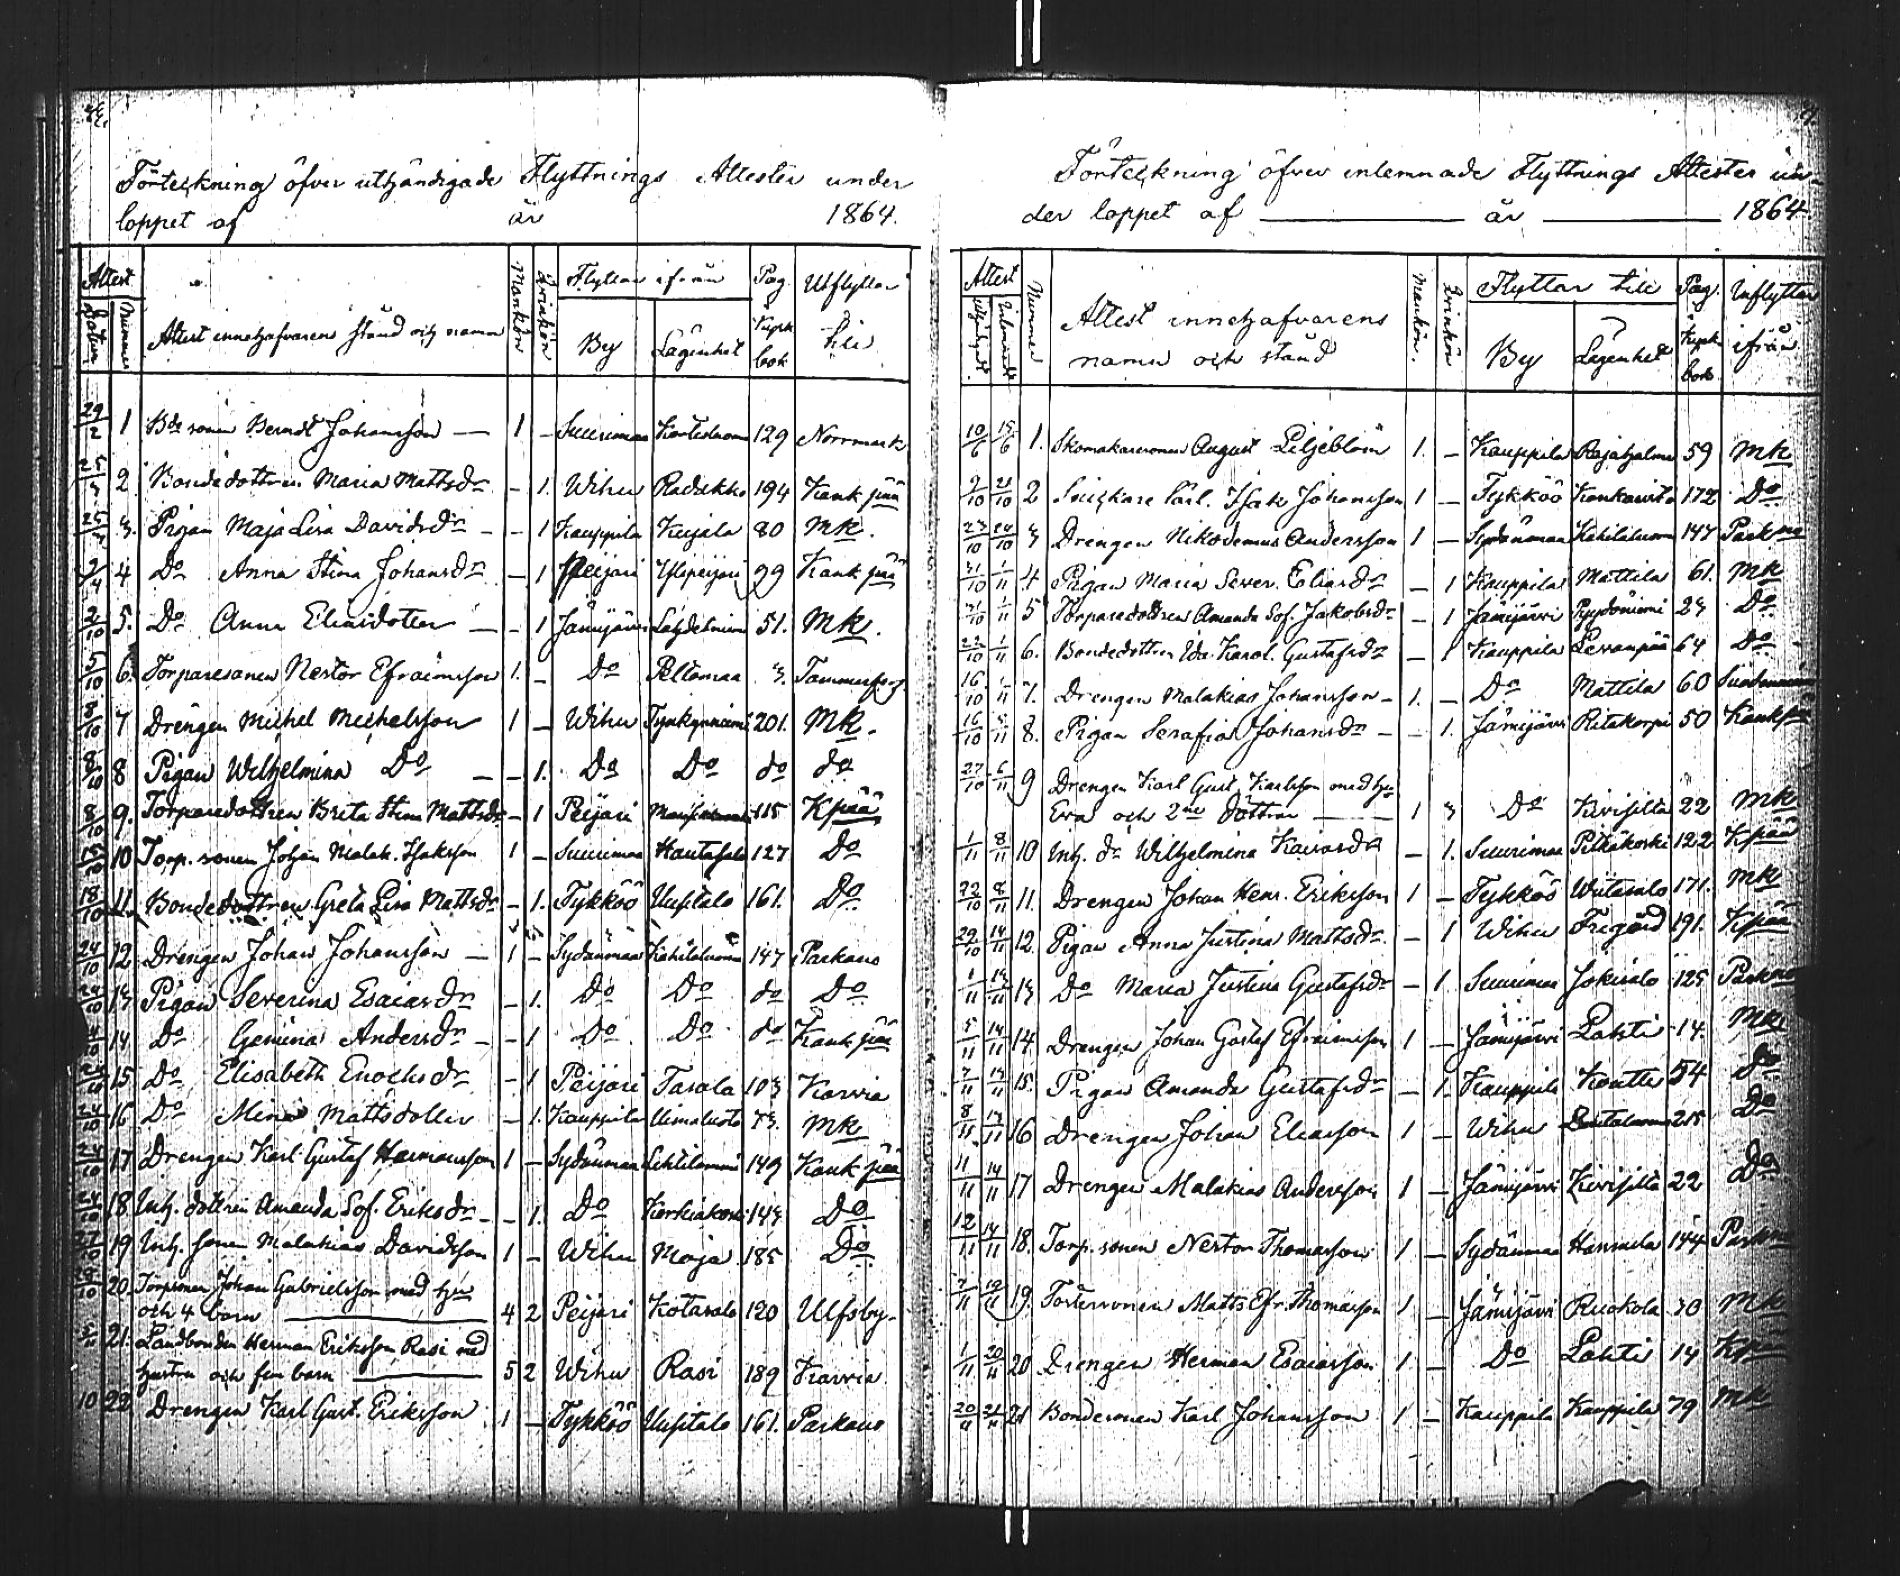 Förteckning öfver uthändigade Flyttnings Attester under
loppet af år 1864.
Attest Mankön Qvinkön Flyttar ifrån Pag. Utflyttar
Datum Nummer Attest innehafvarens stånd och namn By Lägenhet Kyrk bok till
29/2 1 Bde sonen Berndt Johansson — 1 – Suurimaa 129 Norrmark
2 Bondedottren Maria Mattsdr – 1. Wihu Radikko 194 Kankpää
3. Pigan Maja Lisa Davidsdr – 1 Kauppila Kujala 80 Mk.
4 Do Anna Stina Johansdr – 1 Peijari Ylipeijari 99 Kankpää
2/10 5. Do Anna Eliasdotter – 1 Jämijärvi 51. Mk.
5/10 6. Torparesonen Nestor Efraimsson 1. – Do Peltomaa 3. Tammerfors
8/10 7 Drengen Michel Michelsson 1 – Wihu 201. Mk.
8/10 8 Pigan Wilhelmina Do – 1. Do Do do do
8/10 9. Torparedottren Brita Stina Mattsdr – 1 Peijari 115 Kpää
10 Torp. sonen Johan Malak. Isaksson 1 – Suurimaa Hautasalo 127 Do
18/10 11. Bondedottren Greta Lisa Mattsdr – 1. Tykköö Uusitalo 161. Do
24/10 12 Drengen Johan Johansson – 1 – Sydänmaa Kahilaluoma 147 Parkano
24/10 13 Pigan Severina Esaiasdr – 1. Do Do do Do
14 Do Gemina Andersdr – 1 Do Do do Kankpää
15 Do Elisabeth Enochsdr – 1 Peijari Tasala 103 Karvia
16 Do Mina Mattsdotter – 1. Kauppila Uimaluoto 73. Mk
17 Drengen Karl Gustaf Hermansson 1 – Sydänmaa Lehtilammi 149 Kankpää
18 Inh. dottren Amanda Sof. Eriksdr – 1. Do Kerkiäkoski 143 Do
19 Inh. sonen Malakias Davidsson 1 – Wihu Moja 185 Do
20. Torpsonen Johan Gabrielsson med hu
och 4 barn 4 2 Peijari Kotasalo 120 Ulfsby.
21. Landbonden Herman Eriksson Rasi med
hustru och fem barn 5 2 Wihu Rasi 189 Karvia
22 Drengen Karl Gust. Eriksson 1 – Tykköö Uusitalo 161. Parkano
Förteckning öfver inlemnade Flyttnings Attester un-
der loppet af — år — 1864.
Attest Nummer Mankön. Qvinkön Flyttar till Pag. Inflyttar
Attest innehafvarens namn och stånd By Lägenhet Kyrk bok ifrån
10/6 15/6 1. Skomakaresonen August Liljeblom 1. – Kauppila Rajahalme 59 Mk
9/10 21/10 2 Snickare Lärl. Isak Johansson 1 – Tykköö Kankaristo 172 Do
23/10 24/10 3 Drengen Nikodemus Andersson 1 – Sydänmaa Kahilaluoma 147 Parkno
31/10 1/11 4 Pigan Maria Sever. Eliasdr – 1 Kauppila Mattila 61. Mk
31/10 1/11 5 Torparedottren Amanda Sof. Jakobsdr – 1 Jämijärvi Pyydöniemi 23 Do
22/10 1/11 6. Bondedottren Ida Karol. Gustafsdr – 1 Kauppila Levanpää 64 Do
16/10 1/11 7. Drengen Malakias Johansson – 1. – Do Mattila 60
16/10 5/11 8. Pigan Serafia Johansdr – – 1. Jämijärvi Ritakorpi 50 Kankpää
27/10 6/11 9 Drengen Karl Gust. Karlsson med hu
Eva och 2ne döttrar — 1 3 Do Kivisilta 22 Mk
1/11 8/11 10 Inh. dr Wilhelmina Kaisasdr – 1. Suurimaa Pitkäkoski 122 Kpää
22/10 8/11 11. Drengen Johan Henr. Eriksson 1 – Tykköö Wiitasalo 171. Mk
29/10 14/11 12. Pigan Anna Justina Mattsdr. – 1 Wihu Frigård 191. Kpää
1/11 14/11 13 Do Maria Justina Gustafsdr – 1. Suurimaa Jokisalo 125 Parkno
5/11 14/11 14. Drengen Johan Gustaf Efraimsson 1 – Jämijärvi Lahti 14. Mk
7/11 14/11 15. Pigan Amanda Gustafsdr – 1. Kauppila Kontti 54 Do
8/11 14/11 16 Drengen Johan Eliasson 1 – Wihu 215 Do
11/11 14/11 17 Drengen Malakias Andersson 1 – Jämijärvi Kivisilta 22 Do
12/11 14/11 18. Torp. sonen Nestor Thomasson 1 – Sydänmaa Hannula 144 Parkno
7/11 19/11 19. Torparesonen Matts Efr. Thomasson 1 – Jämijärvi Ruokola 30 Mk
1/11 20/11 20 Drengen Herman Esaiasson 1 – Do Lahti 14 Kpää
20/11 21/11 21 Bondesonen Karl Johansson 1 – Kauppila Kauppila 79 Mk